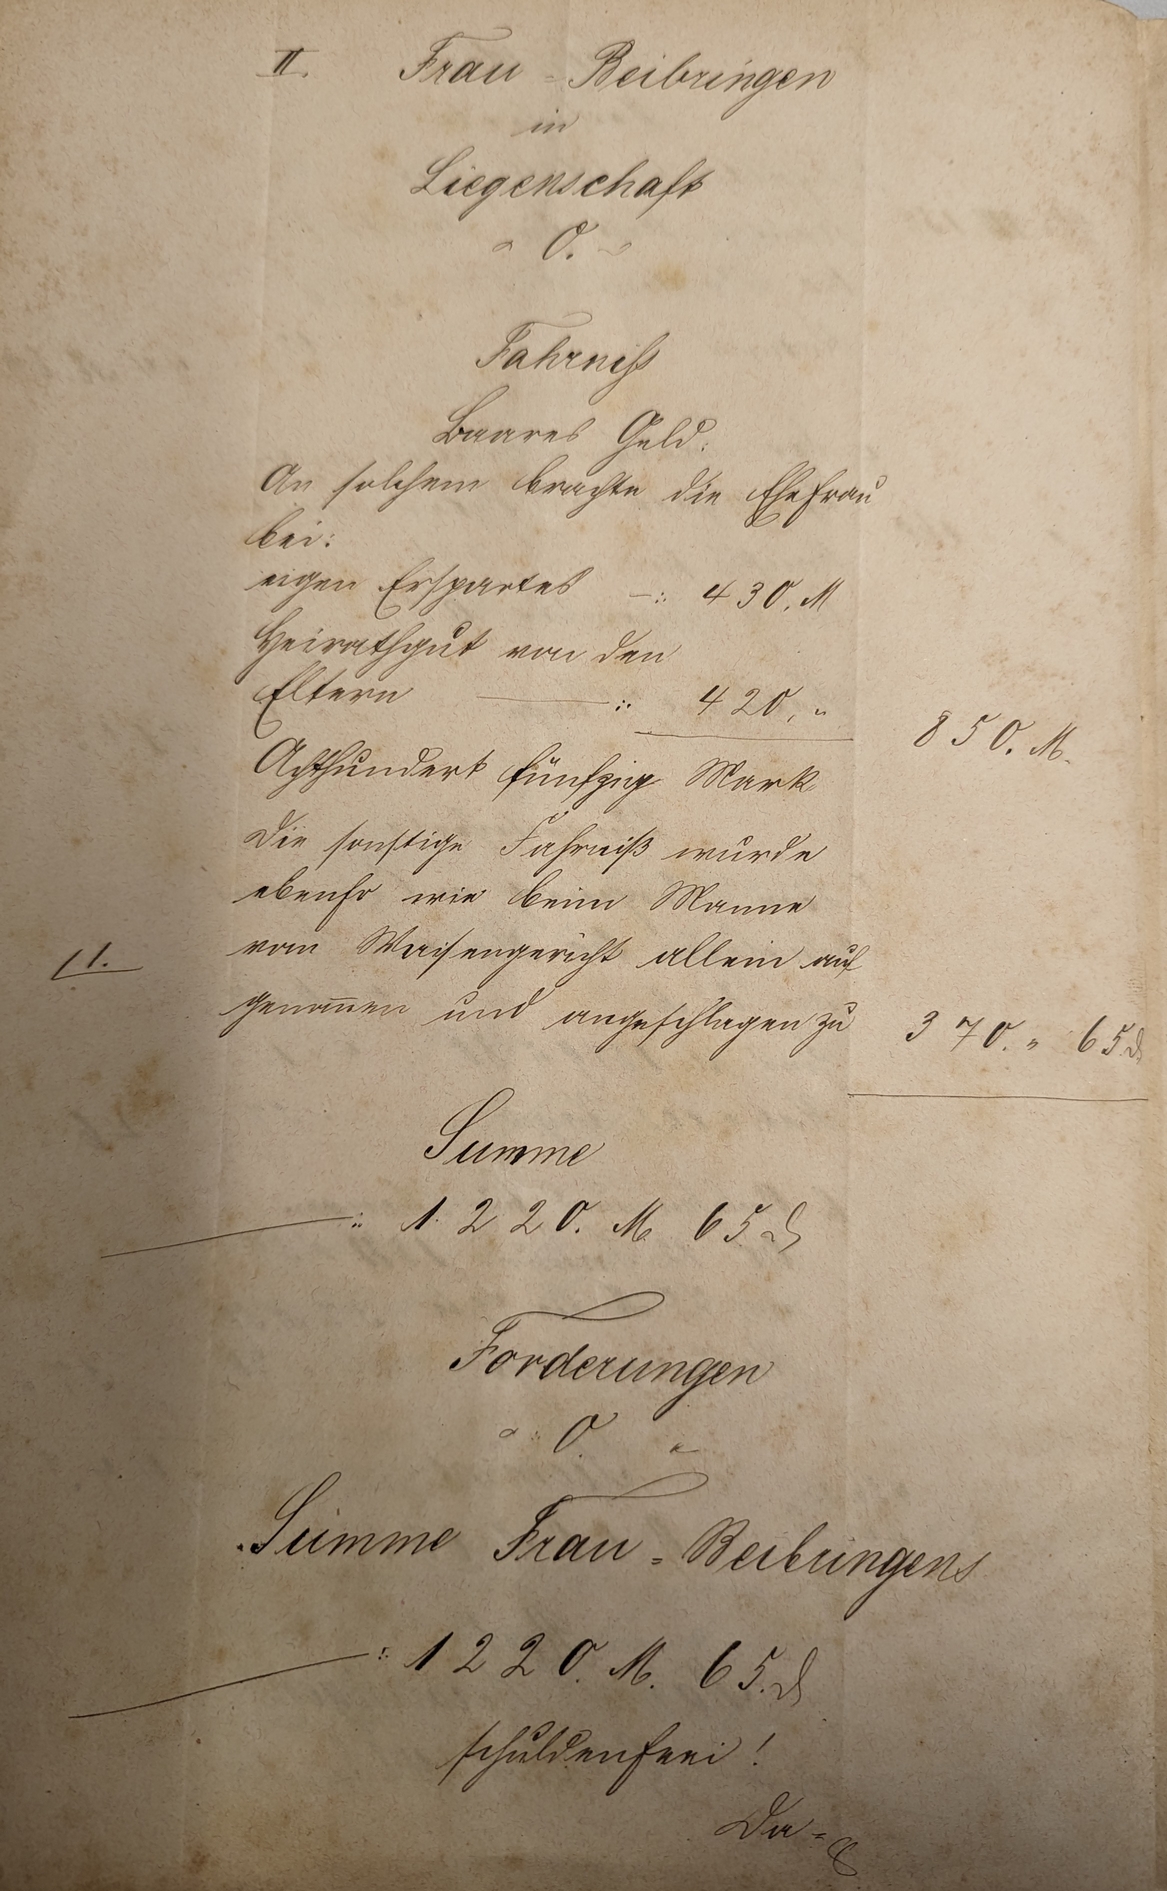 II. Frau-Beibringen
in
Liegenschaft
" O. "
Fahrniß
Baares Geld:
An solchem brachte die Ehefrau
bei:
eigen Erspartes —: 430. M
Heirathgut von den
Eltern —: 420. "
850. M.
Achthundert fünfzig Mark
Die sonstige Fahrniß wurde
ebenso wie beim Manne
11. vom Waisengericht allein auf
genom̅en und angeschlagen zu 370. " 65 ₰
Summe
—: 1220. M. 65 ₰
Forderungen
" O. "
Summe Frau-Beibringens
—: 1220. M. 65. ₰
schuldenfrei!
Da-